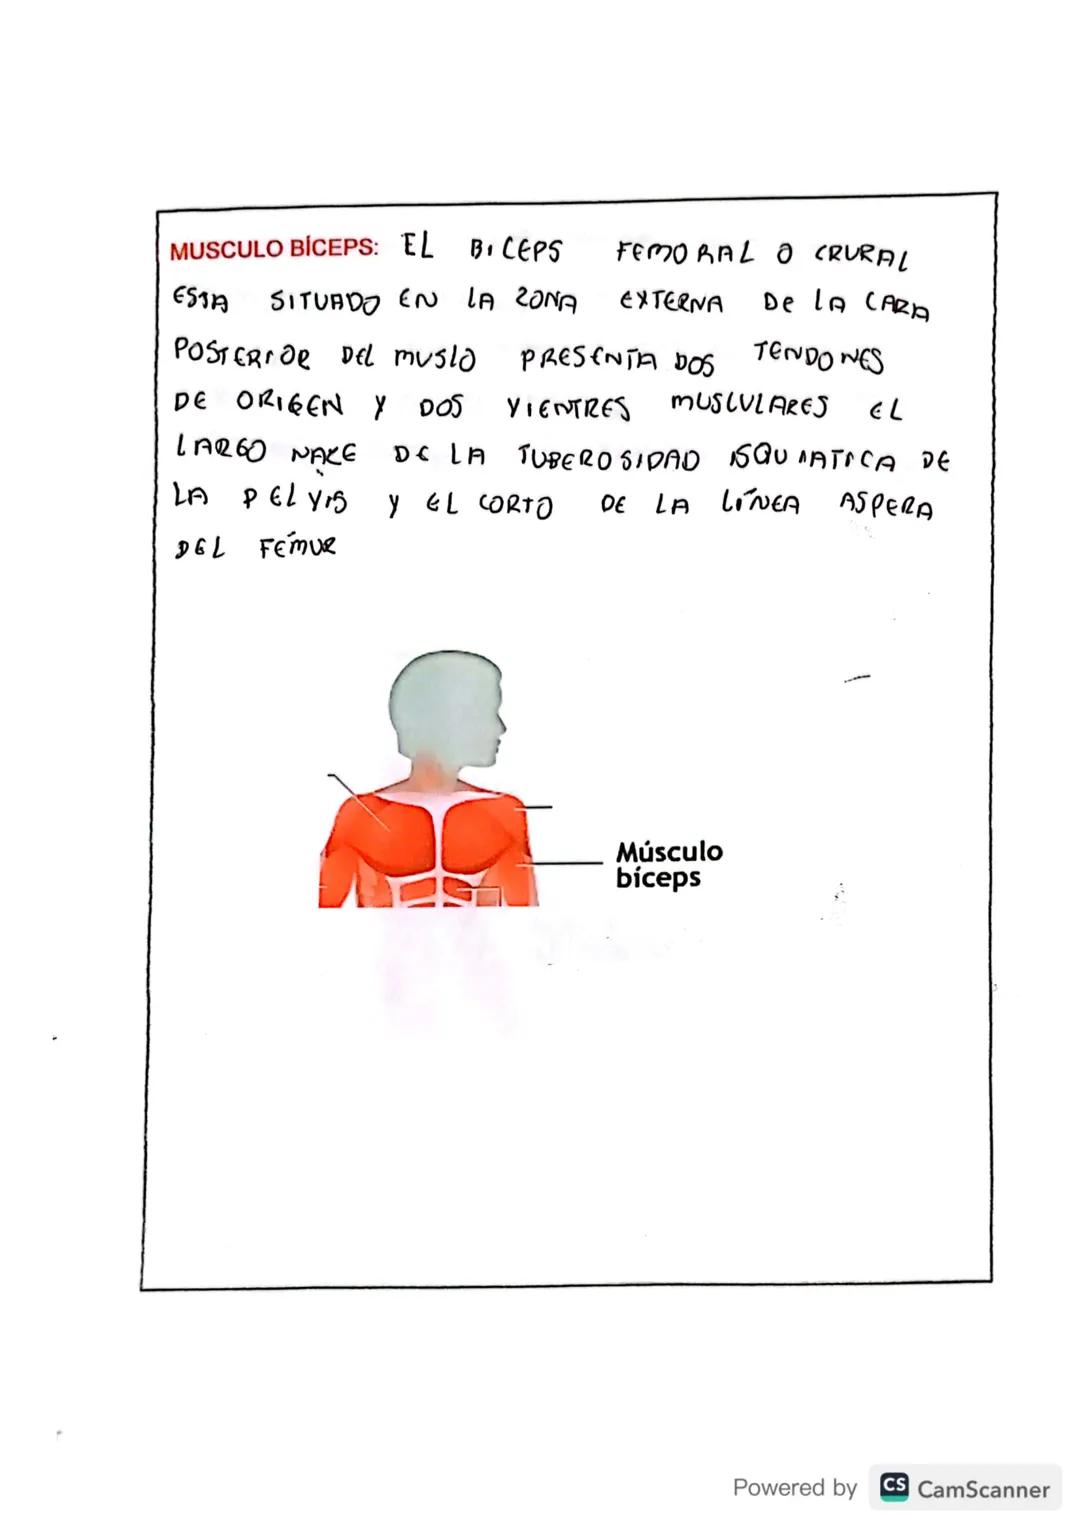 MUSCULO BÍCEPS: EL BICEPS FEMORAL O CRURAL
ESTA SITUADO EN LA ZONA EXTERNA DE LA CARA
POSTERIOR DEL MUSLO PRESENTA DOS TENDONES
DE ORIGEN Y DOS VIENTRES MUSCULARES EL
LARGO NACE DE LA TUBEROSIDAD ISQUIATICA DE
LA PELVIS Y EL CORTO DE LA LÍNEA ASPERA
DEL FÉMUR
Músculo
bíceps
Powered by CS CamScanner